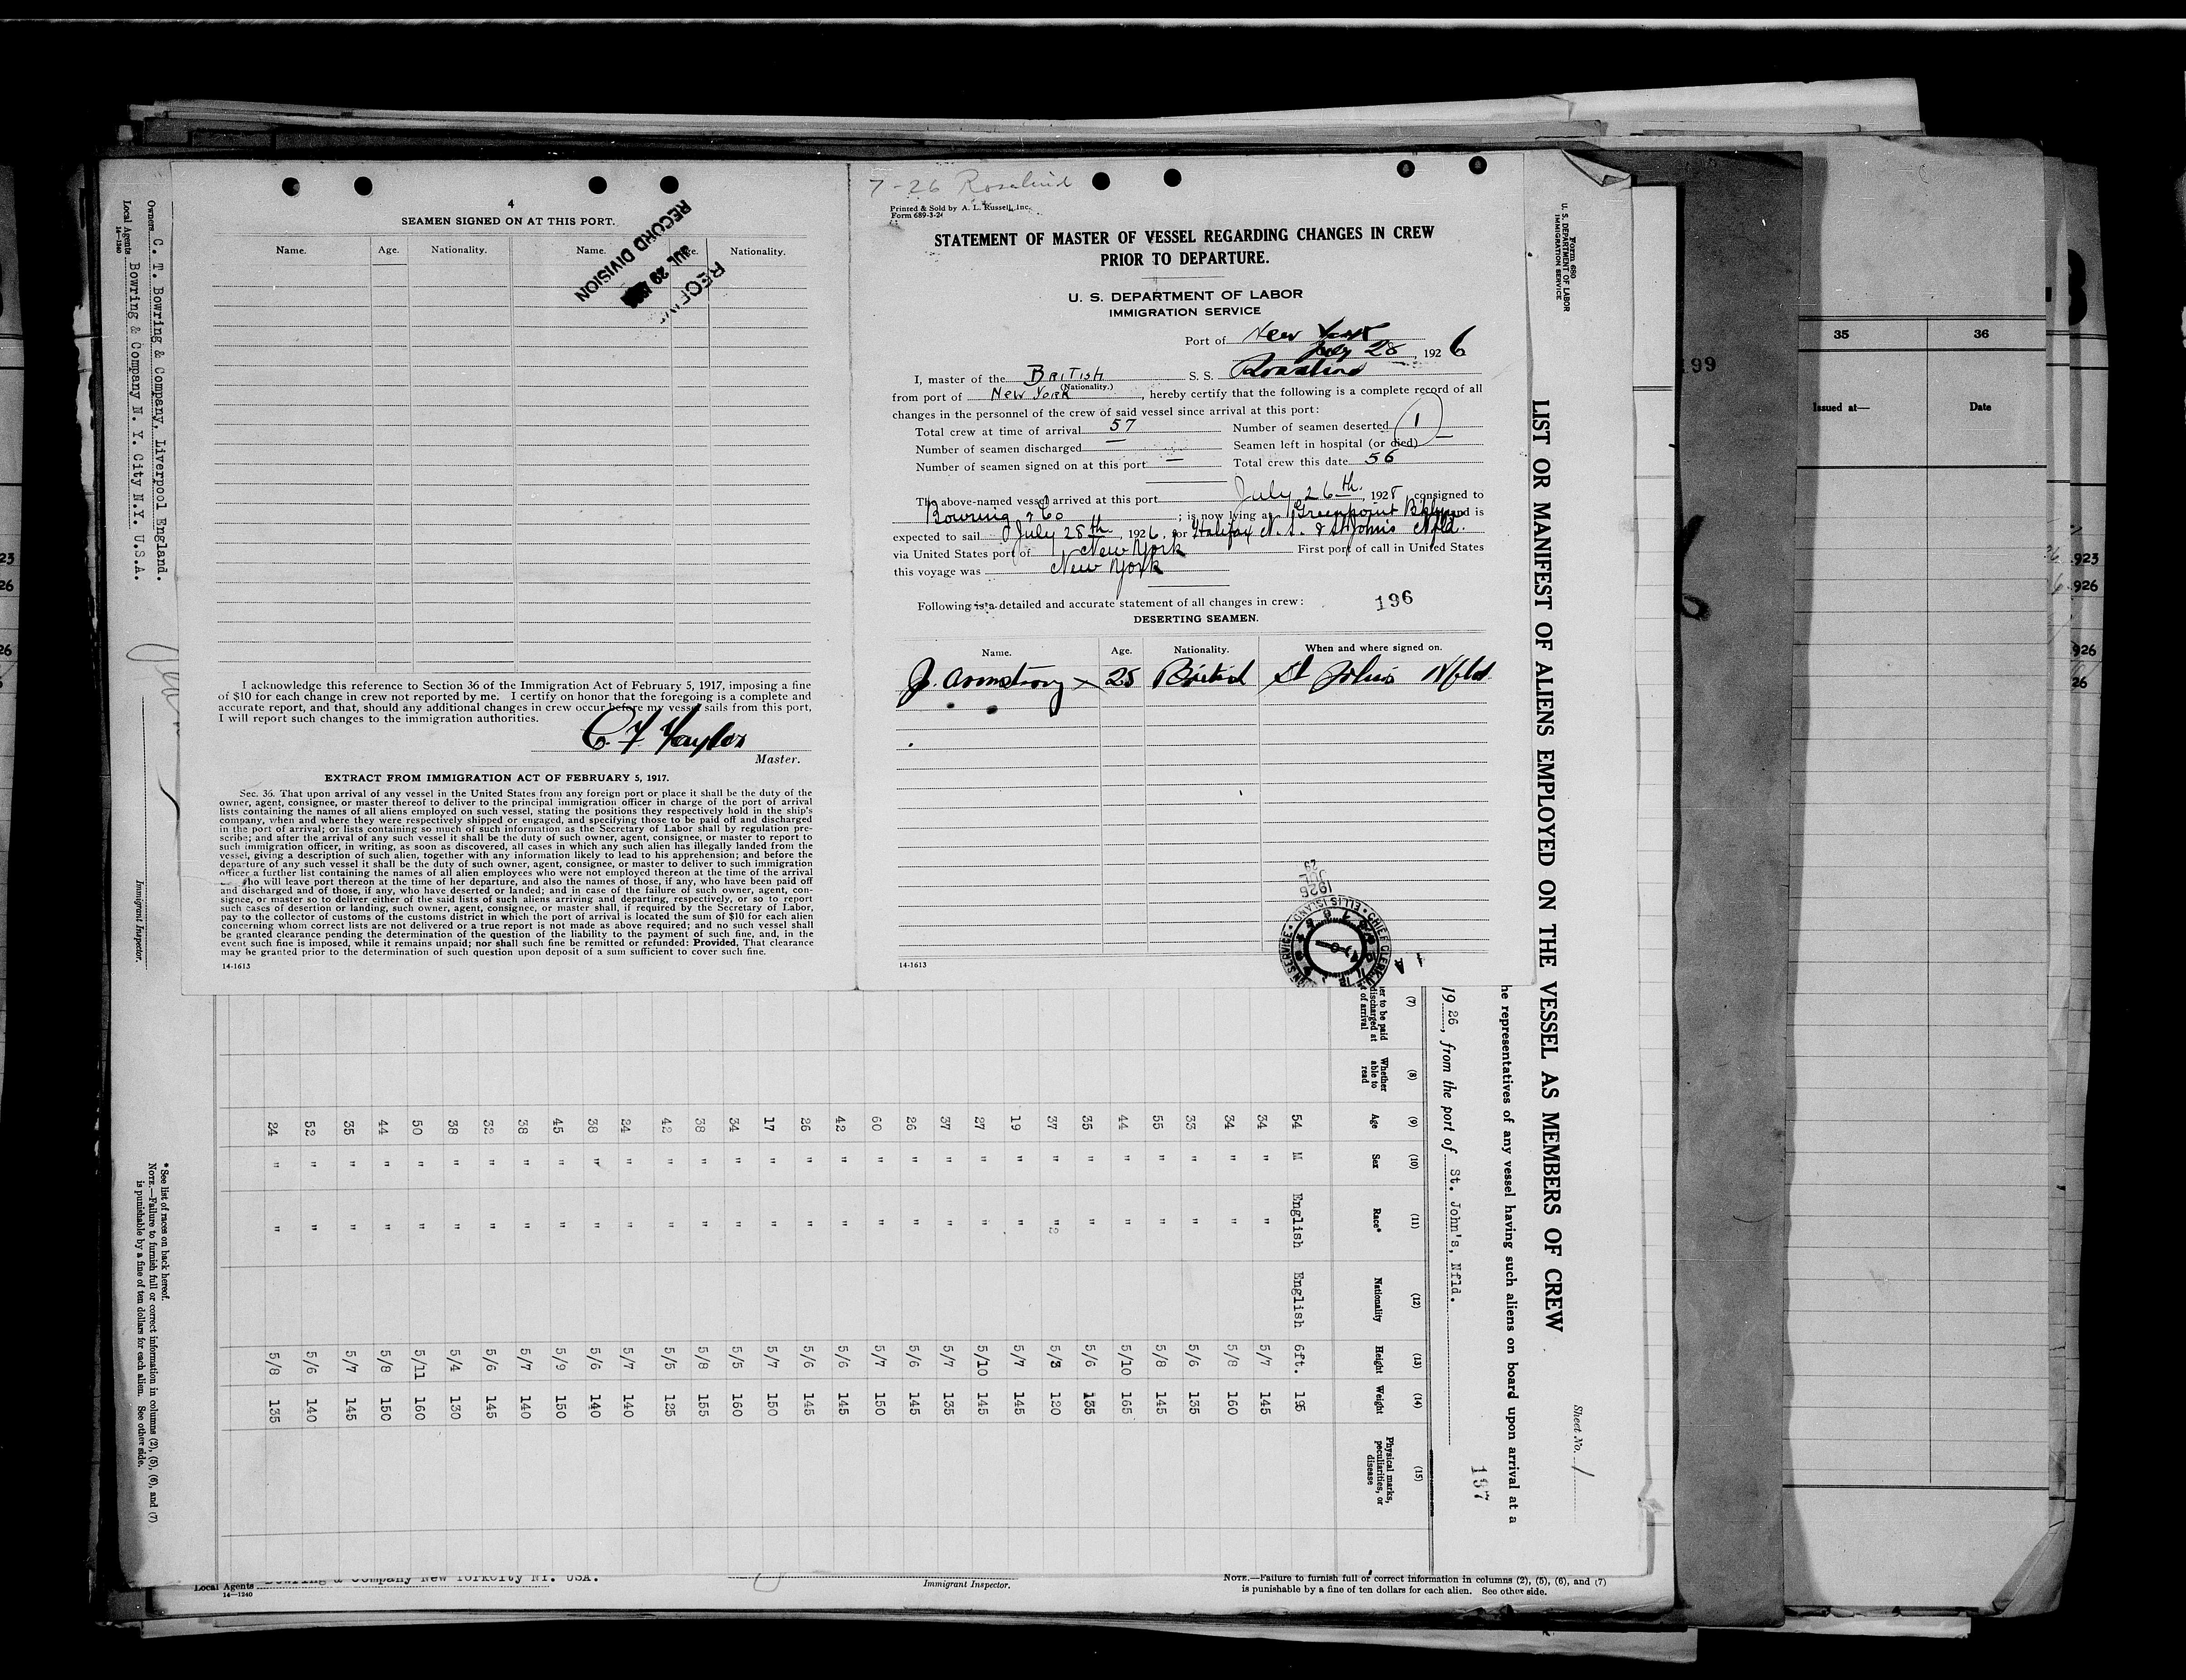 4
SEAMEN SIGNED ON AT THIS PORT.
Name. Age. Nationality. Name. Nationality.
RECORD DIVISION
JUL 29
I acknowledge this reference to Section 36 of the Immigration Act of February 5, 1917, imposing a fine
of $10 for each change in crew not reported by me. I certify on honor that the foregoing is a complete and
accurate report, and that, should any additional changes in crew occur before my vessel sails from this port,
I will report such changes to the immigration authorities.
C. F. Taylor
Master.
EXTRACT FROM IMMIGRATION ACT OF FEBRUARY 5, 1917.
Sec. 36. That upon arrival of any vessel in the United States from any foreign port or place it shall be the duty of the
owner, agent, consignee, or master thereof to deliver to the principal immigration officer in charge of the port of arrival
lists containing the names of all aliens employed on such vessel, stating the positions they respectively hold in the ship's
company, when and where they were respectively shipped or engaged, and specifying those to be paid off and discharged
in the port of arrival; or lists containing so much of such information as the Secretary of Labor shall by regulation pre-
scribe; and after the arrival of any such vessel it shall be the duty of such owner, agent, consignee, or master to report to
such immigration officer, in writing, as soon as discovered, all cases in which any such alien has illegally landed from the
vessel, giving a description of such alien, together with any information likely to lead to his apprehension; and before the
departure of any such vessel it shall be the duty of such owner, agent, consignee, or master to deliver to such immigration
officer a further list containing the names of all alien employees who were not employed thereon at the time of the arrival
who will leave port thereon at the time of her departure, and also the names of those, if any, who have been paid off
and discharged and of those, if any, who have deserted or landed; and in case of the failure of such owner, agent, con-
signee, or master so to deliver either of the said lists of such aliens arriving and departing, respectively, or so to report
such cases of desertion or landing, such owner, agent, consignee, or master shall, if required by the Secretary of Labor,
pay to the collector of customs of the customs district in which the port of arrival is located the sum of $10 for each alien
concerning whom correct lists are not delivered or a true report is not made as above required; and no such vessel shall
be granted clearance pending the determination of the question of the liability to the payment of such fine, and, in the
event such fine is imposed, while it remains unpaid; nor shall such fine be remitted or refunded: Provided, That clearance
may be granted prior to the determination of such question upon deposit of a sum sufficient to cover such fine.
14-1613
7-26 Rosalind
Printed & Sold by A. L. Russell, Inc.
Form 689-3-24
STATEMENT OF MASTER OF VESSEL REGARDING CHANGES IN CREW
PRIOR TO DEPARTURE.
U. S. DEPARTMENT OF LABOR
IMMIGRATION SERVICE
Port of New York
July 28, 1926
I, master of the British S. S. Rosalind
(Nationality.)
from port of New York, hereby certify that the following is a complete record of all
changes in the personnel of the crew of said vessel since arrival at this port:
Total crew at time of arrival 57 Number of seamen deserted 1
Number of seamen discharged — Seamen left in hospital (or died) —
Number of seamen signed on at this port — Total crew this date 56
The above-named vessel arrived at this port July 26th, 192 consigned to
Bowring & Co; is now lying at Greenpoint Bklyn and is
expected to sail July 28th, 1926, for Halifax N.S. & St Johns Nfld.
via United States port of New York First port of call in United States
this voyage was New York
Following is a detailed and accurate statement of all changes in crew: 196
DESERTING SEAMEN.
Name. Age. Nationality. When and where signed on.
J. Armstrong x 28 British St Johns Nfld
1926 JUL
CHIEF CLERK ELLIS ISLAND
14-1613
Form 680
U. S. DEPARTMENT OF LABOR
IMMIGRATION SERVICE
LIST OR MANIFEST OF ALIENS EMPLOYED ON THE VESSEL AS MEMBERS OF CREW
Sheet No. 1
he representatives of any vessel having such aliens on board upon arrival at a
1926, from the port of St. John's, Nfld.
197
(7) (8) (9) (10) (11) (12) (13) (14) (15)
er to be paid discharged at of arrival Whether able to read Age Sex Race* Nationality Height Weight Physical marks, peculiarities, or disease
54 M English English 6ft. 195
34 " " 5/7 145
34 " " 5/8 160
33 " " 5/6 135
55 " " 5/8 145
44 " " 5/10 165
35 " " 5/6 135
37 " " 5/3 120
19 " " 5/7 145
27 " " 5/10 145
37 " " 5/7 135
26 " " 5/6 145
60 " " 5/7 150
42 " " 5/6 145
26 " " 5/6 145
17 " " 5/7 150
34 " " 5/5 160
38 " " 5/8 155
42 " " 5/5 125
24 " " 5/7 140
38 " " 5/6 140
45 " " 5/9 150
38 " " 5/7 140
32 " " 5/6 145
38 " " 5/4 130
50 " " 5/11 160
44 " " 5/8 150
35 " " 5/7 145
52 " " 5/6 140
24 " " 5/8 135
Owners C. T. Bowring & Company, Liverpool England.
Local Agents Bowring & Company N. Y. City N.Y. U.S.A.
14-1240
Immigrant Inspector.
*See list of races on back hereof.
NOTE.—Failure to furnish full or correct information in columns (2), (5), (6), and (7)
is punishable by a fine of ten dollars for each alien. See other side.
Local Agents Bowring & Company New YorkCity NY. USA.
14-1240
Immigrant Inspector.
NOTE.—Failure to furnish full or correct information in columns (2), (5), (6), and (7)
is punishable by a fine of ten dollars for each alien. See other side.
199
35 36
Issued at— Date
923
926
926
26